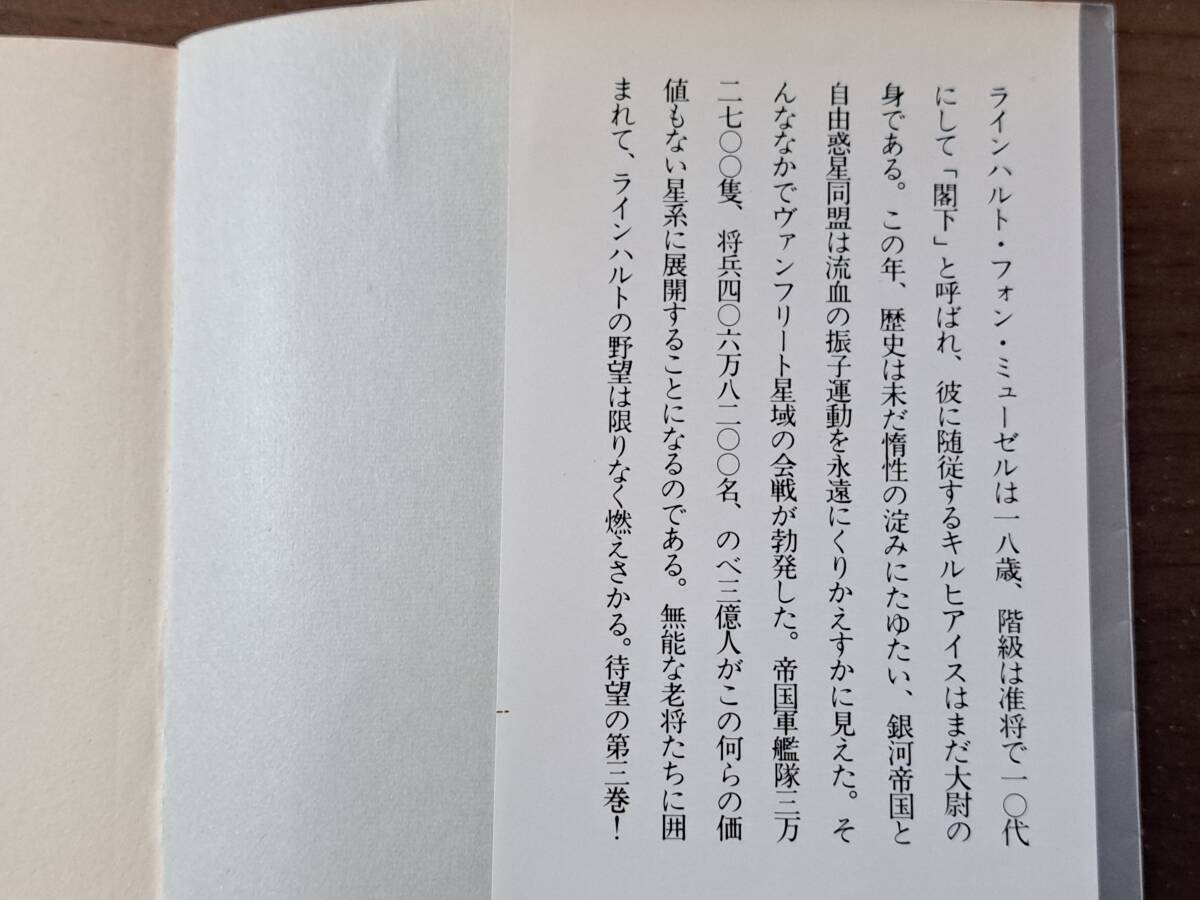 ラインハルト・フォン・ミューゼルは一八歳、階級は准将で一〇代
にして「閣下」と呼ばれ、彼に随従するキルヒアイスはまだ大尉の
身である。この年、歴史は未だ惰性の淀みにたゆたい、銀河帝国と
自由惑星同盟は流血の振子運動を永遠にくりかえすかに見えた。そ
んななかでヴァンフリート星域の会戦が勃発した。帝国軍艦隊三万
二七〇〇隻、将兵四〇六万八二〇〇名、のべ三億人がこの何らの価
値もない星系に展開することになるのである。無能な老将たちに囲
まれて、ラインハルトの野望は限りなく燃えさかる。待望の第三巻！